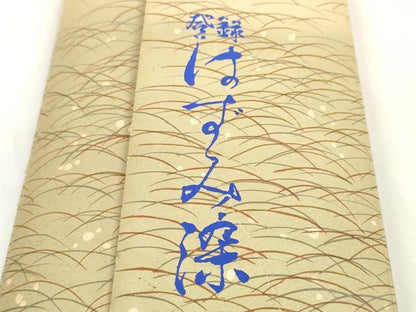 登録
はずみ染